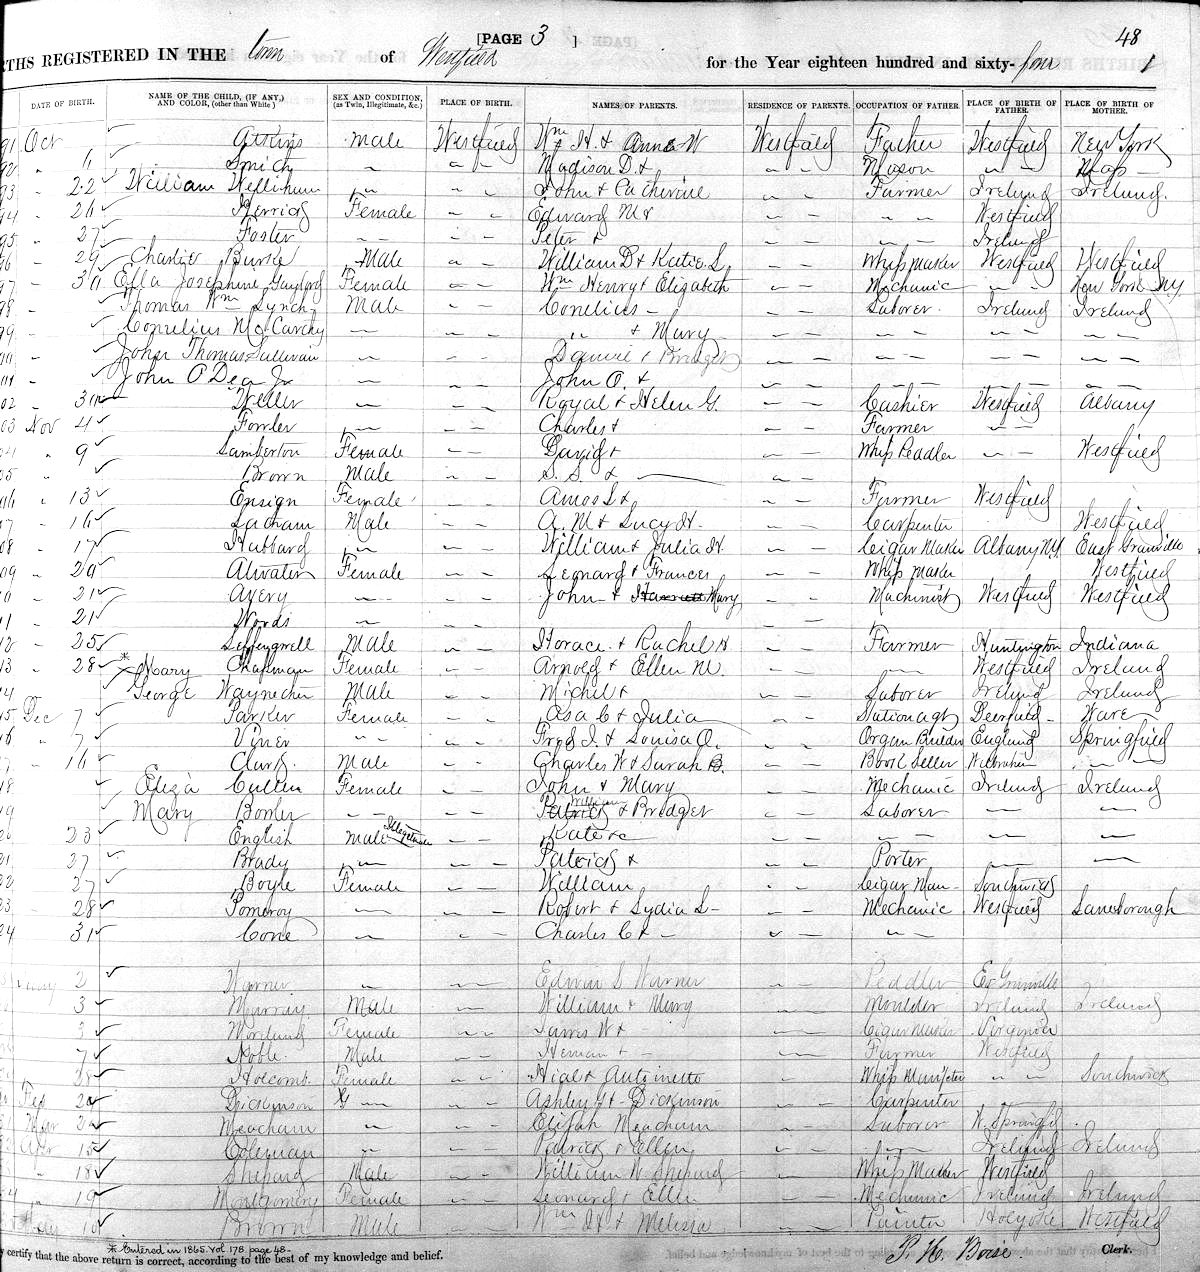 [PAGE 3 ] 48
THS REGISTERED IN THE town of Westfield for the Year eighteen hundred and sixty-four 1
DATE OF BIRTH. NAME OF THE CHILD, (IF ANY,) AND COLOR, (other than White) SEX AND CONDITION, (as Twin, Illegitimate, &c.) PLACE OF BIRTH. NAMES OF PARENTS. RESIDENCE OF PARENTS. OCCUPATION OF FATHER. PLACE OF BIRTH OF FATHER. PLACE OF BIRTH OF MOTHER.
91 Oct ✓ Atkins Male Westfield Wm H. & Anne W Westfield Westfield New York
92 " ✓ Smith ~ " " Madison D & " " Mason ~ Mass
93 " 22 ✓ William Wellihum " " " John & Catherine " " Farmer Ireland Ireland.
94 " 26 ✓ Herrick Female " " Edward M & " " " " Westfield
95 " 27 ✓ Foster ~ " " Peter & " " " " Ireland
96 " 29 ✓ Charlie Burke Male " " William D & Katie L " " Whip Maker Westfield Westfield
97 " 30 ✓ Ella Josephine Gaylord Female " " Wm Henry & Elizabeth " " Mechanic " " New York NY
98 " ✓ Thomas Wm Lynch Male " " Cornelius - " " Laborer Ireland Ireland
99 " ✓ Cornelius McCarthy ~ " " " & Mary " " ~ ~ ~
" ✓ John Thomas Sullivan ~ " " Daniel & Bridget " " ~ ~ ~
" ✓ John O Dea Jr ~ John O. & " " ~ ~ ~
02 " 30 ✓ Weller ~ " " Royal & Helen G. " " Cashier Westfield Albany
03 Nov 4 ✓ Fowler ~ " " Charles & " " Farmer " "
04 " 9 ✓ Lamberton Female " " David & " " Whip Peddler " " Westfield
05 " ✓ Brown Male " " S. S. & " "
06 " 13 ✓ Ensign Female " " Amos L & " " Farmer Westfield
07 " 16 ✓ Latham Male " " A. M & Lucy H. " " Carpenter Westfield
08 " 17 ✓ Hubbard " " " William & Julia H. " " Cigar Maker Albany NY East Granville
09 " 20 ✓ Atwater Female " " Leonard & Frances " " Whip Maker Westfield
10 " 21 ✓ Avery ~ " " John & Harriett Mary " " Machinist Westfield Westfield
11 " 21 ✓ Words ~ " " " "
12 " 25 ✓ Leffingwell Male " " Horace & Rachel H " " Farmer Huntington Indiana
13 " 28 ✓ * Mary Chapman Female " " Arnold & Ellen M. " " ~ Westfield Ireland
14 George Male " " Michel & " " Laborer Ireland Ireland
15 Dec 7 ✓ Parker Female " " Asa C & Julia " " Station agt Deerfield Ware
16 " 7 ✓ Viner " " " " Fred I. & Louisa A. " " Organ Builder England Springfield
17 " 16 ✓ Clark Male " " Charles W & Sarah B. " " Book Seller Wilbraham " "
18 ✓ Eliza Cullen Female " " John & Mary " " Mechanic Ireland Ireland
19 ✓ Mary Bowler " " " " Patrick William & Bridget " " Laborer ~ ~
20 23 English Male Illegitimate " " Kate " " ~ ~ ~
21 27 ✓ Brady ~ " " Patrick & " " Porter ~ ~
22 27 ✓ Boyle Female " " William " " Cigar Man - Southwick
23 " 28 ✓ Pomeroy ~ " " Robert & Lydia L - " " Mechanic Westfield Lanesborough
24 31 ✓ Cone ~ " " Charles C & - " " " "
2 ✓ Warner ~ " " Edwin S Warner Peddler E. Granville
3 ✓ Murray Male " " William & Mary " " Moulder Ireland Ireland
3 ✓ Female " " James W & " " Cigar Maker Virginia
7 ✓ Noble Male " " Heman & - " " Farmer Westfield
28 ✓ Holcomb Female " " Hial & Antinette Whip Manfctr " " Southwick
Feb 20 ✓ Dickinson ~ " " Ashley H Dickinson " " Carpenter
Mar 24 ✓ Meacham ~ " " Elijah Meacham " " Laborer W. Springfld
Apr 15 ✓ Coleman ~ " " Patrick & Ellen " " ~ Ireland Ireland
" 18 ✓ Shepard Male " " William W Shepard Whip Maker Westfield
" 19 ✓ Montgomery Female " " Leonard & Ellen " " Mechanic Ireland Ireland
May 10 ✓ Brown Male " " Wm H & Melissa Painter Holyoke Westfield
* Entered in 1865. Vol 178 page 48-
y certify that the above return is correct, according to the best of my knowledge and belief. P. H. Boise. Clerk.